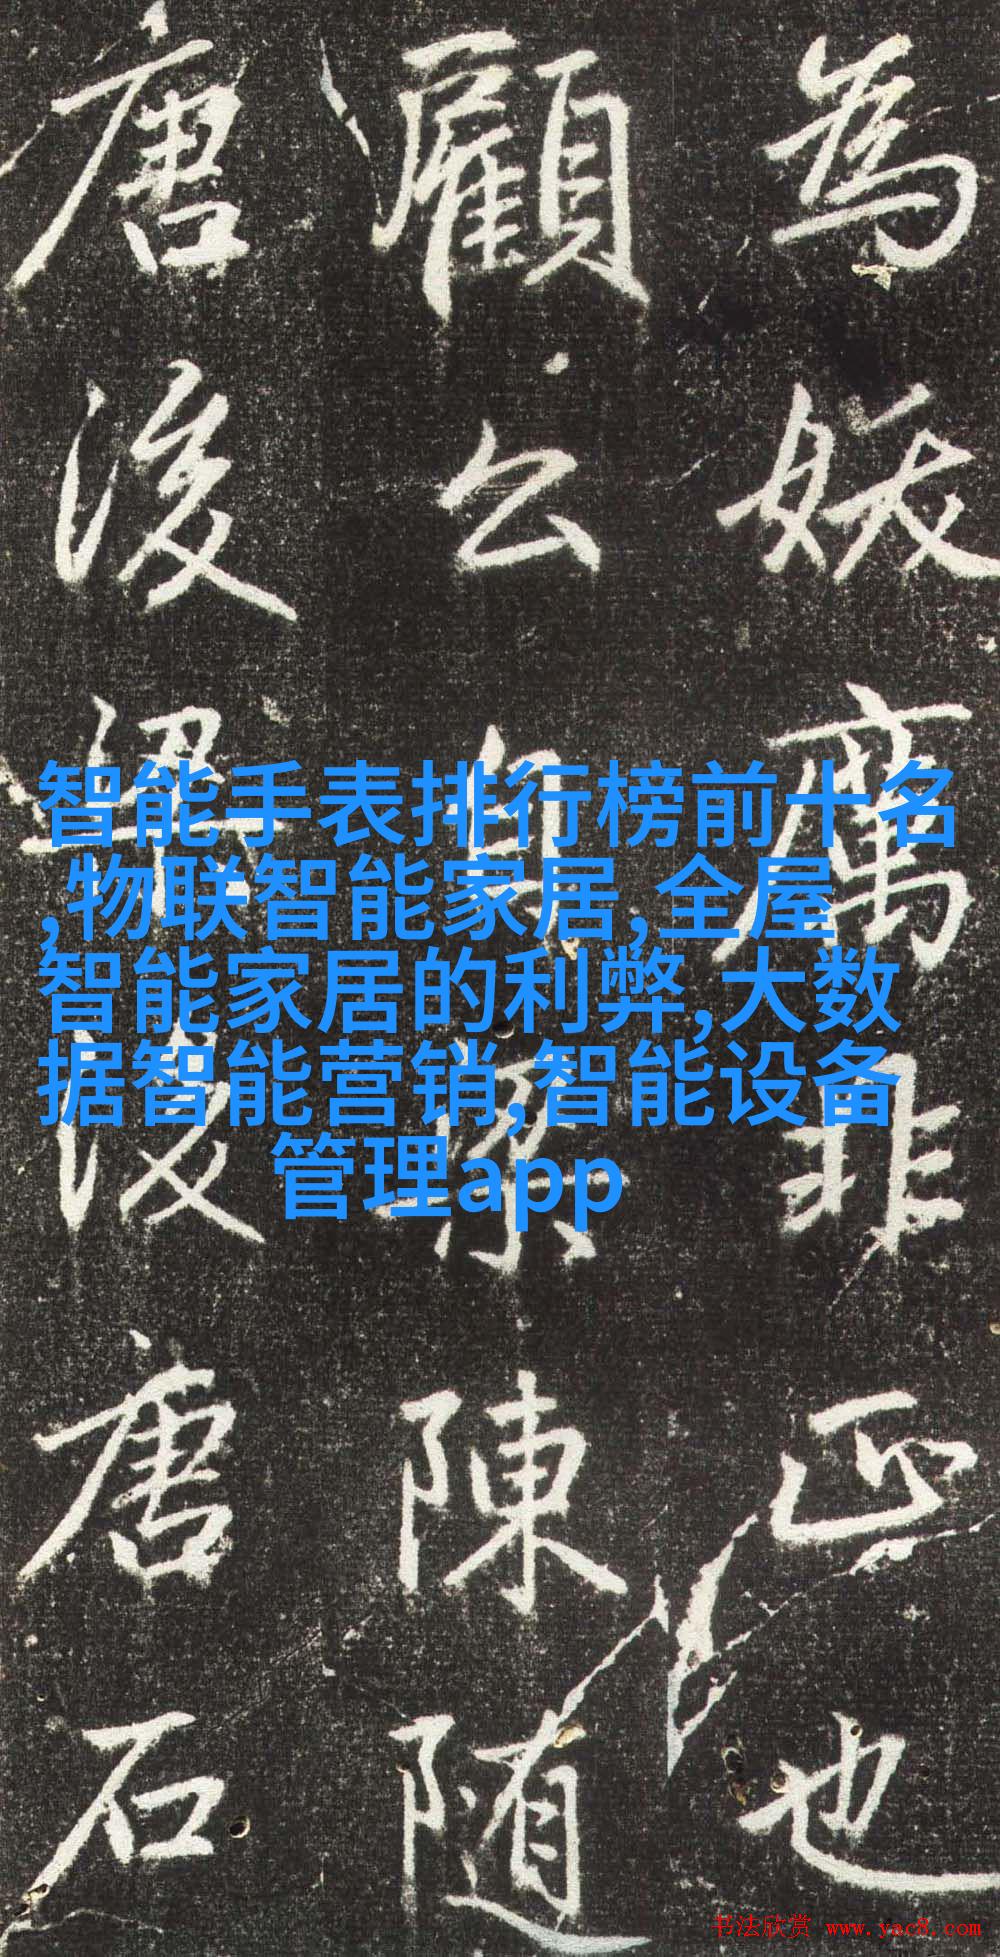 為妖厲非正也
顧公自陳随
唐後梁後唐石
智能手表排行榜前十名
,物联智能家居,全屋
智能家居的利弊,大数
据智能营销,智能设备
管理app
书法欣赏 www.yac8.com